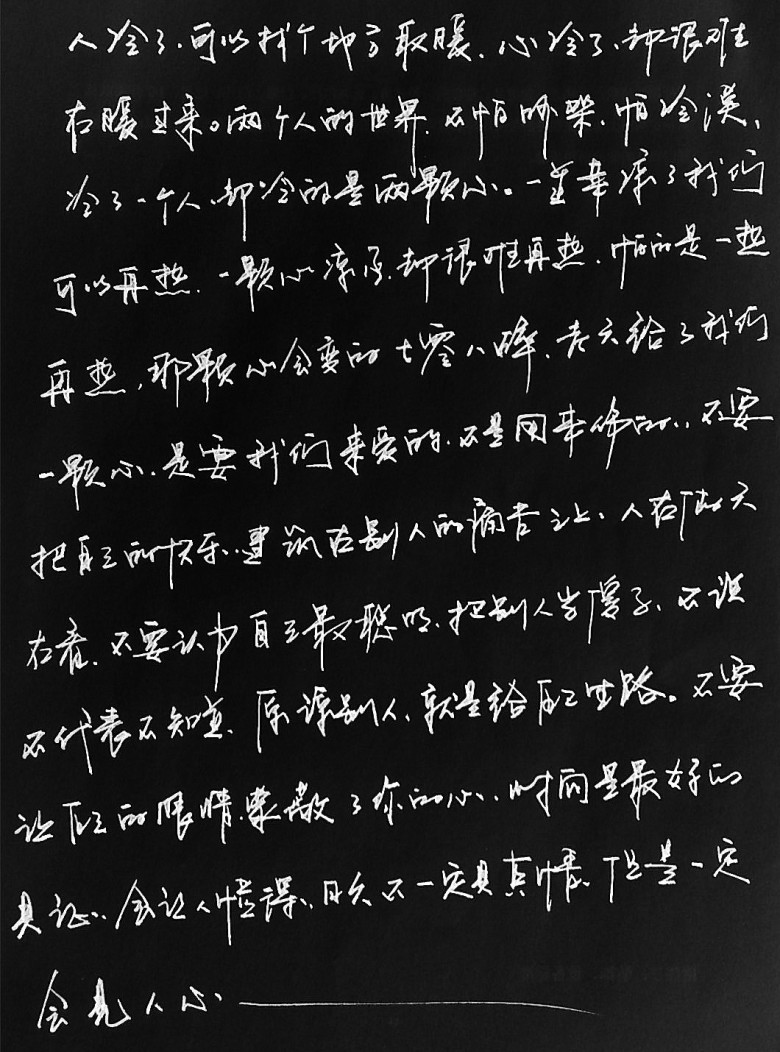 人冷了、可以找个地方取暖、心冷了、却很难
在暖过来。两个人的世界、不怕吵架、怕冷漠、
冷了一个人、却冷的是两颗心。一壶茶凉了我们
可以再热、一颗心凉了、却很难再热、怕的是一热
再热，那颗心会变的七零八碎、老天给了我们
一颗心、是要我们来爱的、不是用来伤的、不要
把自己的快乐、建筑在别人的痛苦之上、人在做天
在看、不要认为自己最聪明、把别人当傻子、不说
不代表不知道、原谅别人、就是给自己生路。不要
让自己的眼睛、蒙蔽了你的心、时间是最好的
见证、会让人懂得、日久不一定见真情、但是一定
会见人心、